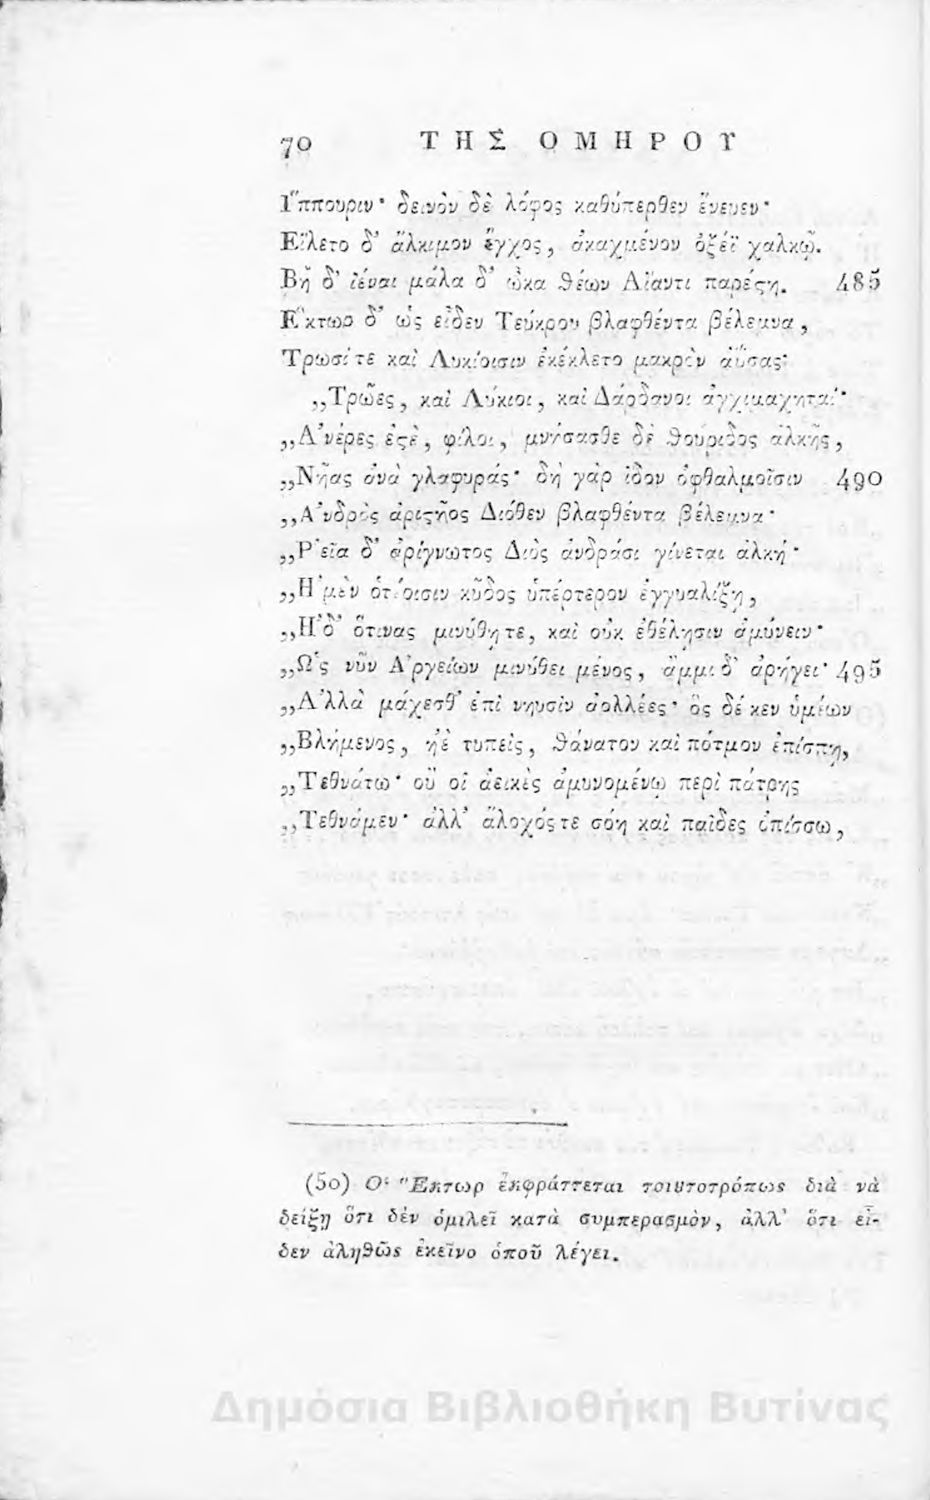 70 ΤΗΣ ΟΜΗΡΟΥ
Ἵππουριν· δεινὸν δὲ λόφος καθύπερθεν ἔνευεν·
Εἵλετο δ' ἄλκιμον ἔγχος, ἀκαχμένον ὀξέϊ χαλκῷ.
Βῆ δ' ἰέναι μάλα δ' ὦκα θέων Αἴαντι παρέςη. 485
Ἕκτωρ δ' ὡς εἶδεν Τεύκρου βλαφθέντα βέλεμνα,
Τρωσί τε καὶ Λυκίοισιν ἐκέκλετο μακρὸν ἀΰσας·
„Τρῶες, καὶ Λύκιοι, καὶ Δάρδανοι ἀγχιμαχηταί·
„Ἀνέρες ἐςὲ, φίλοι, μνήσασθε δὲ θούριδος ἀλκῆς,
„Νῆας ἀνὰ γλαφυράς· δὴ γὰρ ἴδον ὀφθαλμοῖσιν 490
„Ἀνδρὸς ἀριςῆος Διόθεν βλαφθέντα βέλεμνα·
„Ῥεῖα δ' ἀρίγνωτος Διὸς ἀνδράσι γίνεται ἀλκή·
„Ἠμὲν ὁτέοισιν κῦδος ὑπέρτερον ἐγγυαλίξῃ,
„Ἠδ' ὅτινας μινύθῃ τε, καὶ οὐκ ἐθέλῃσιν ἀμύνειν·
„Ὡς νῦν Ἀργείων μινύθει μένος, ἄμμι δ' ἀρήγει· 495
„Ἀλλὰ μάχεσθ' ἐπὶ νηυσὶν ἀολλέες· ὃς δέ κεν ὑμέων
„Βλήμενος, ἠὲ τυπεὶς, θάνατον καὶ πότμον ἐπίσπῃ,
„Τεθνάτω· οὔ οἱ ἀεικὲς ἀμυνομένῳ περὶ πάτρης
„Τεθνάμεν· ἀλλ' ἄλοχός τε σόη καὶ παῖδες ὀπίσσω,
(50) Ὁ Ἕκτωρ ἐκφράττεται τοιȣτοτρόπως διὰ νὰ
δείξῃ ὅτι δὲν ὁμιλεῖ κατὰ συμπερασμὸν, ἀλλ' ὅτι εἶ-
δεν ἀληθῶς ἐκεῖνο ὁποῦ λέγει.
Δημόσια Βιβλιοθήκη Βυτίνας